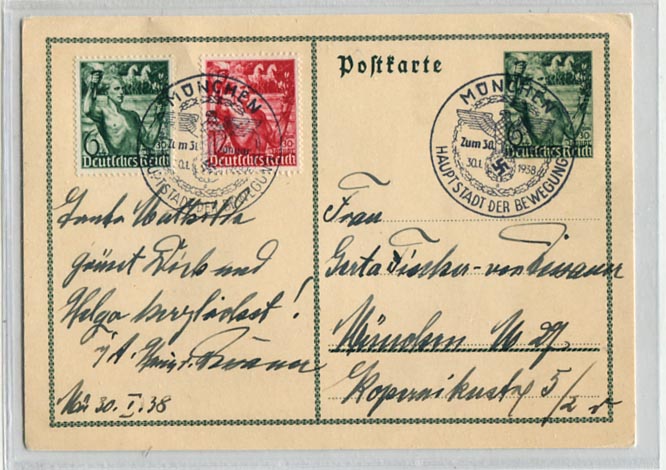 Postkarte
6 30
Deutsches Reich
Deutsches Reich
MÜNCHEN
Zum 30.
30.1.
HAUPTSTADT DER BEWEGUNG
MÜNCHEN
Zum 30.
30.1. 1938
HAUPTSTADT DER BEWEGUNG
30
Deutsches Reich
Tante
grüsst und
Helga herzlichst!
Mü 30. I. 38
Frau
Gerta Fischer-von
München M 27.
Kopernikusstr 5/2 r